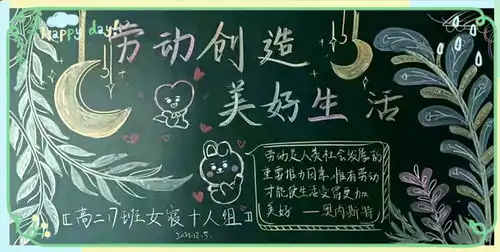 happy day
劳动创造
美好生活
劳动是人类社会发展的
重要推力因素,惟有劳动
才能使生活变得更加
美好 ——奥内斯特
【高二7班女寝十人组】
2021.12.5.